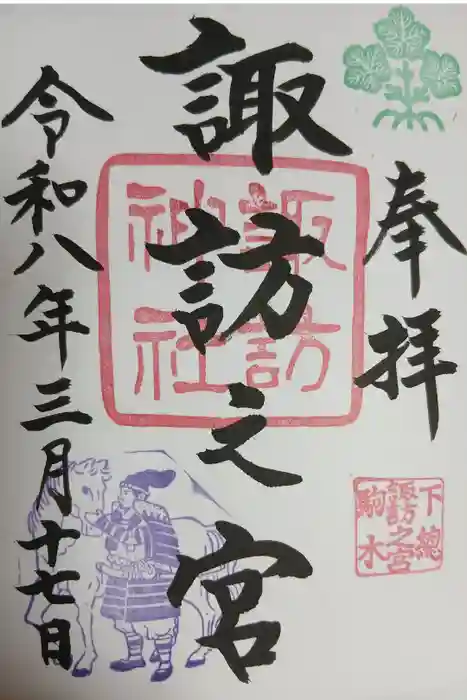 奉拝
諏訪之宮
令和八年三月十七日
諏訪
神社
下總
諏訪之宮
駒木